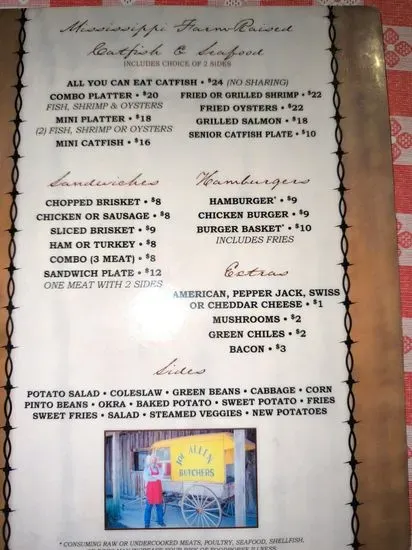 Mississippi Farm Raised
Catfish & Seafood
(INCLUDES CHOICE OF 2 SIDES
ALL YOU CAN EAT CATFISH • $24 (NO SHARING)
COMBO PLATTER • $20
FISH, SHRIMP & OYSTERS
MINI PLATTER • $18
(2) FISH, SHRIMP OR OYSTERS
MINI CATFISH • $16
FRIED OR GRILLED SHRIMP • $22
FRIED OYSTERS • $22
GRILLED SALMON • $18
SENIOR CATFISH PLATE • $10
Sandwiches
CHOPPED BRISKET • $8
CHICKEN OR SAUSAGE • $8
SLICED BRISKET • $9
HAM OR TURKEY • $8
COMBO (3 MEAT) • $8
SANDWICH PLATE • $12
ONE MEAT WITH 2 SIDES
Hamburgers
HAMBURGER* • $9
CHICKEN BURGER • $9
BURGER BASKET* • $10
INCLUDES FRIES
Extras
AMERICAN, PEPPER JACK, SWISS
OR CHEDDAR CHEESE • $1
MUSHROOMS • $2
GREEN CHILES • $2
BACON • $3
Sides
POTATO SALAD • COLESLAW • GREEN BEANS • CABBAGE • CORN
PINTO BEANS • OKRA • BAKED POTATO • SWEET POTATO • FRIES
SWEET FRIES • SALAD • STEAMED VEGGIES • NEW POTATOES
JOE ALLEN
BUTCHERS
* CONSUMING RAW OR UNDERCOOKED MEATS, POULTRY, SEAFOOD, SHELLFISH,